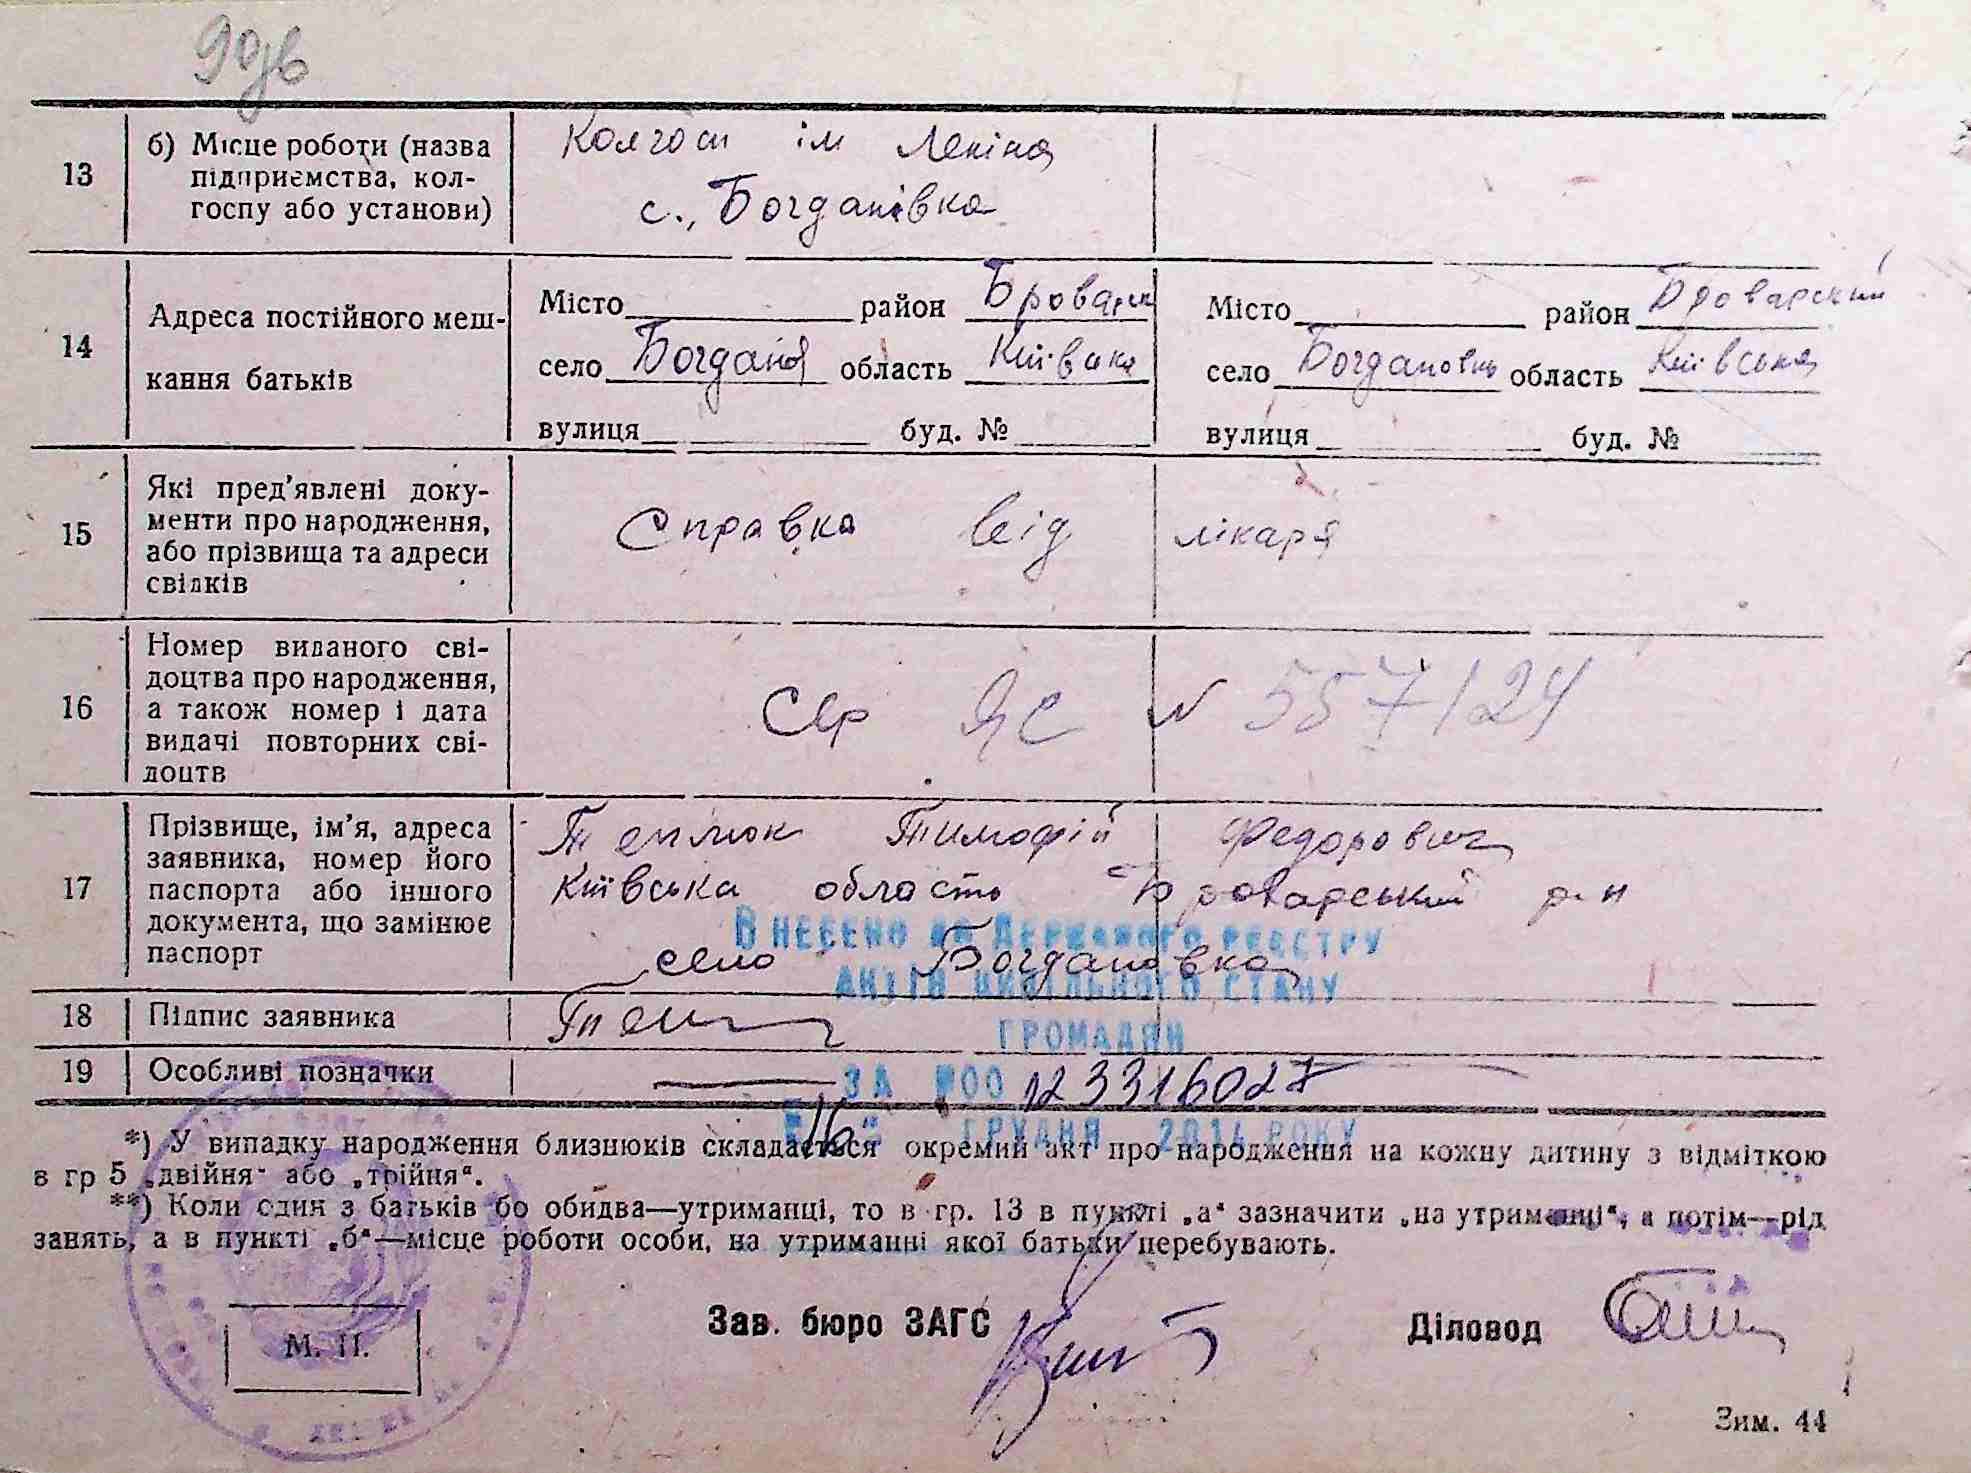 90зв
13
б) Місце роботи (назва
підприємства, кол-
госпу або установи)
Колгосп ім Леніна
с., Богданівка
14
Адреса постійного меш-
кання батьків
Місто район Броварск
село Богданів область Київська
вулиця буд. №
Місто район Броварский
село Богдановка область Київська
вулиця буд. №
15
Які пред'явлені доку-
менти про народження,
або прізвища та адреси
свідків
Справка від лікаря
16
Номер виданого сві-
доцтва про народження,
а також номер і дата
видачі повторних сві-
доцтв
Сер ЯС N 557124
17
Прізвище, ім'я, адреса
заявника, номер його
паспорта або іншого
документа, що замінює
паспорт
Теплюк Тимофій Федорович
Київська область Броварський р-н
село Богдановка
ВНЕСЕНО ДО ДЕРЖАВНОГО РЕЄСТРУ
АКТІВ ЦИВІЛЬНОГО СТАНУ
ГРОМАДЯН
18
Підпис заявника
19
Особливі позначки
ЗА №00 123316027
"16" ГРУДНЯ 2014 РОКУ
*) У випадку народження близнюків складається окремий акт про народження на кожну дитину з відміткою
в гр 5 „двійня“ або „трійня“.
**) Коли один з батьків бо обидва—утриманці, то в гр. 13 в пункті „а“ зазначити „на утриманці“, а потім—рід
занять, а в пункті „б“—місце роботи особи, на утриманні якої батьки перебувають.
М. П.
Зав. бюро ЗАГС
Діловод
Зим. 44